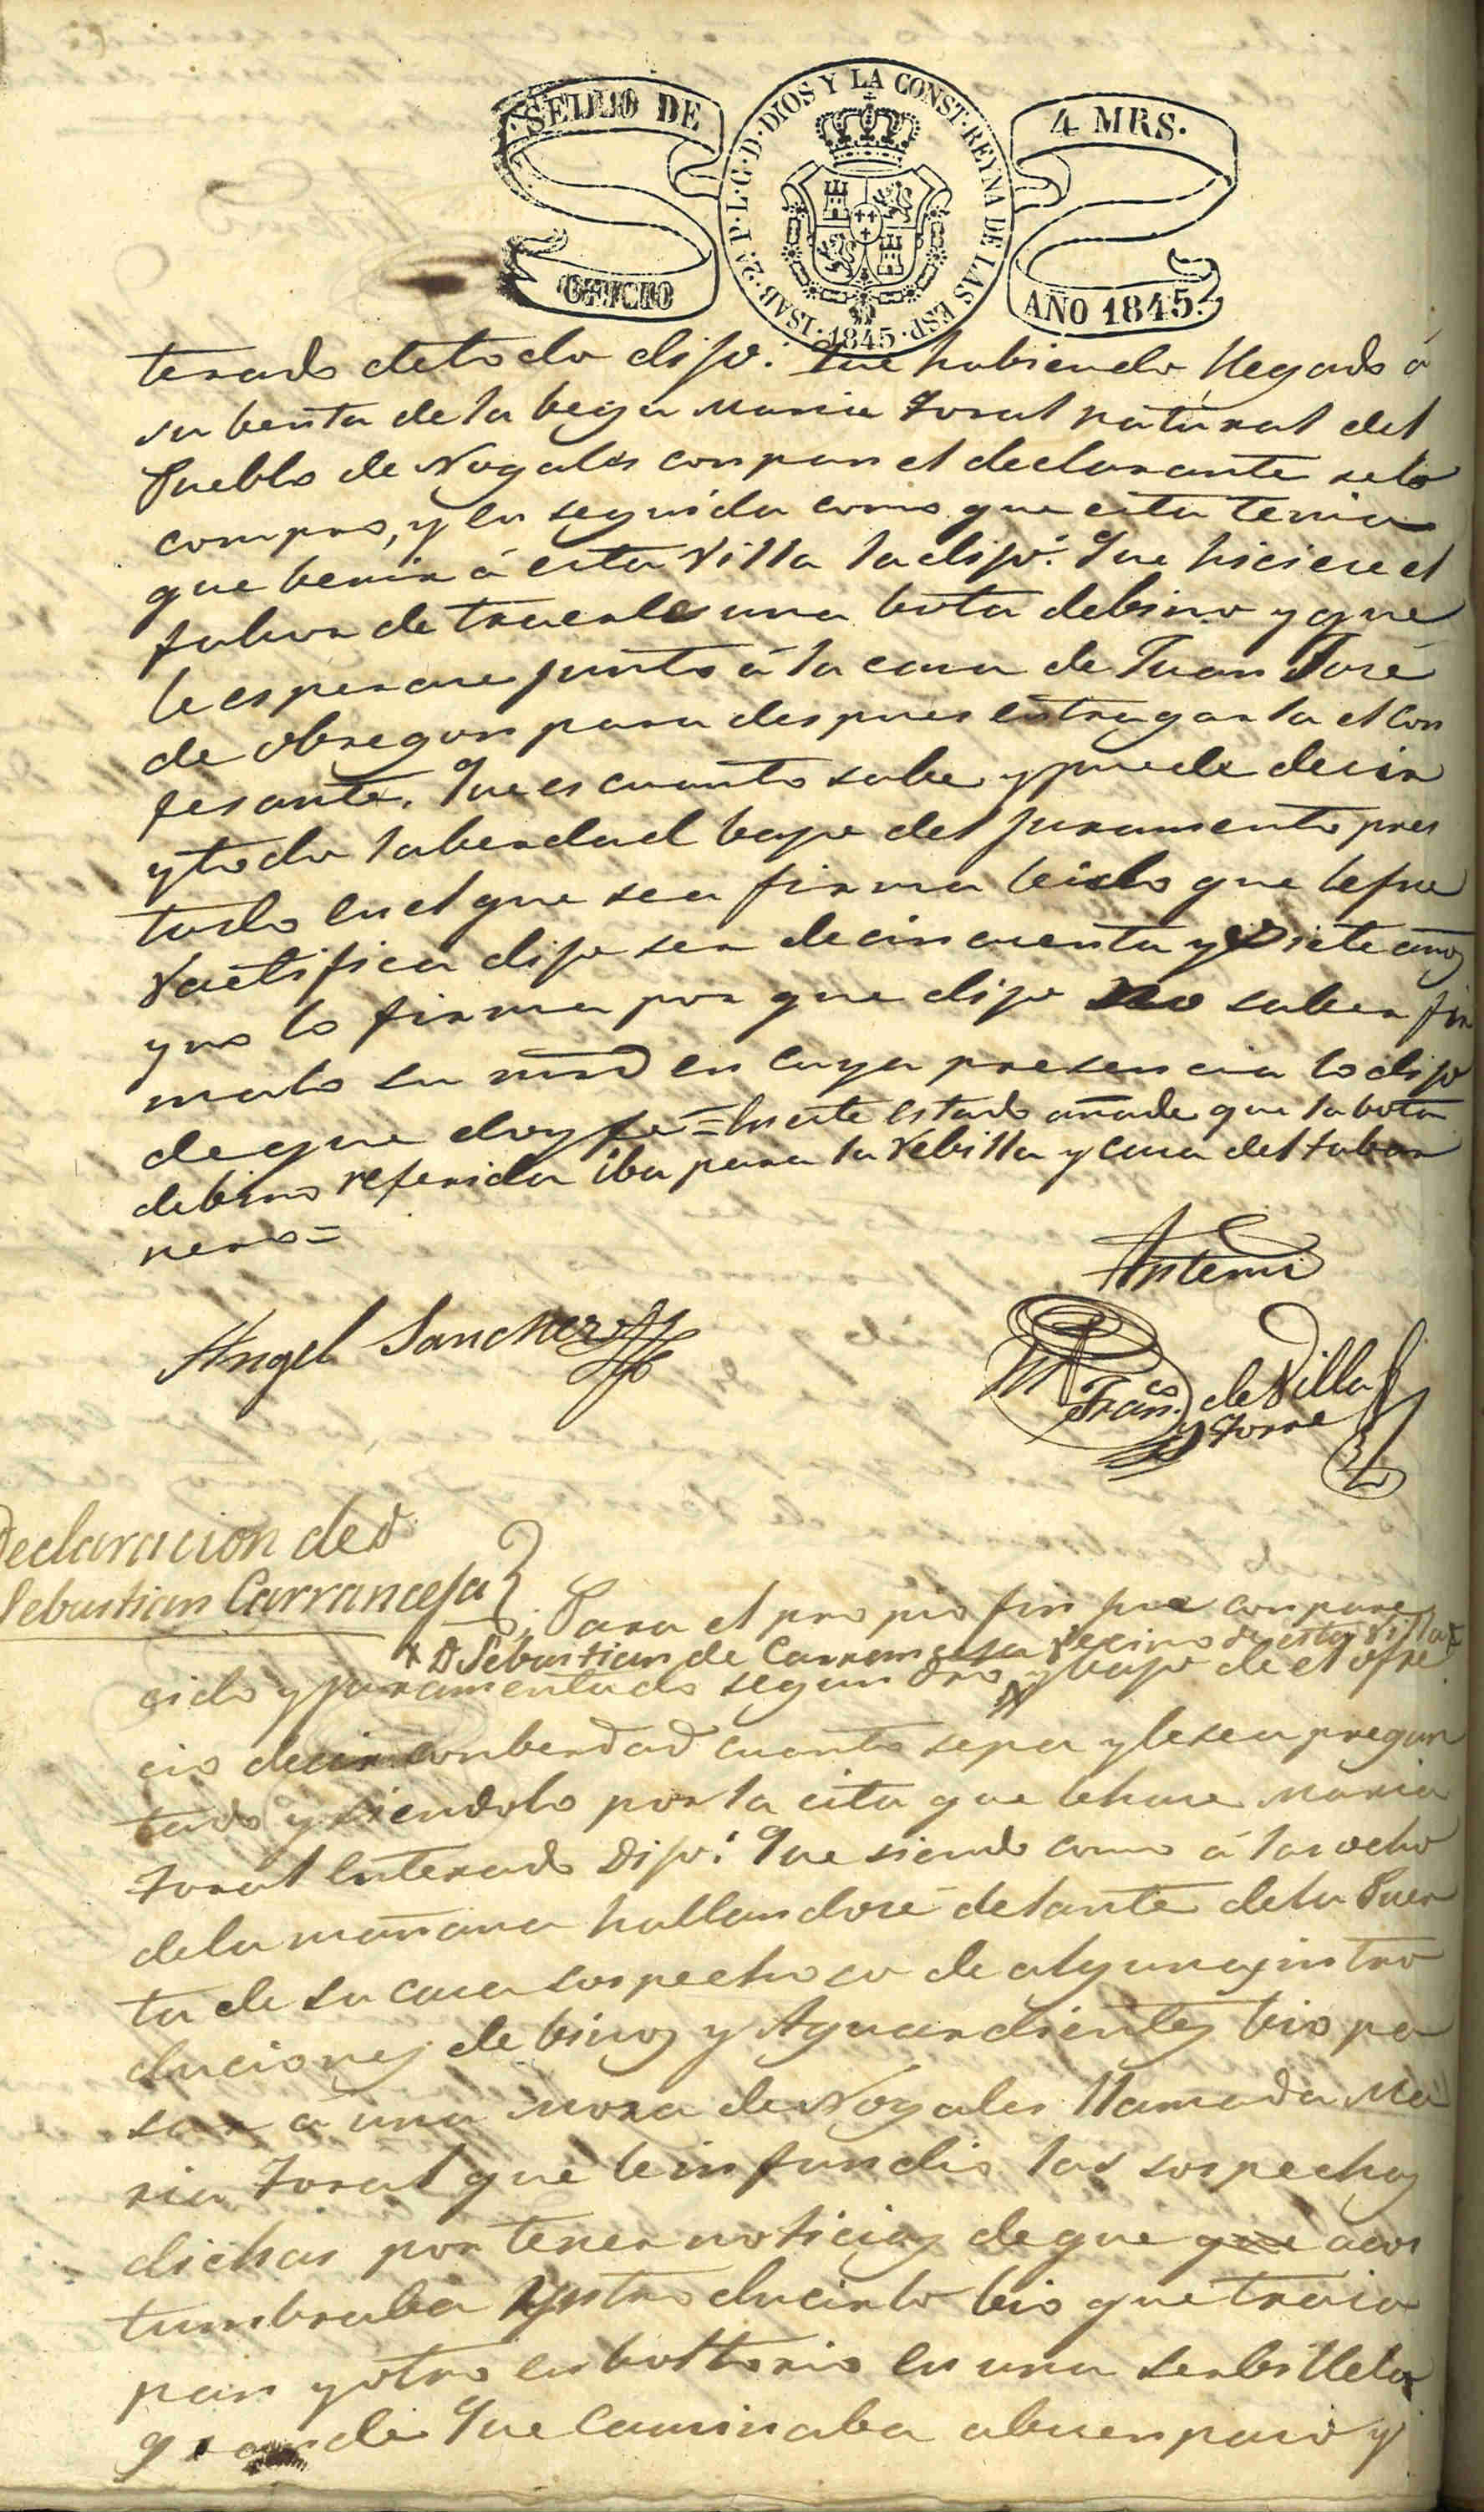 SELLO DE OFICIO
ISAB. 2ª P. L. G. D. DIOS Y LA CONST. REYNA DE LAS ESP. 1845
4 MRS.
AÑO 1845.
terado detodo dijo. Que habiendo llegado á
su benta de la bega Maria Toral natural del
Pueblo de Nogales con pan el declarante selo
compro, y en seguida como que esta tenia
que benir á esta Villa la dijo: Que hiciere el
fabor de traerle una bota debino y que
le esperare junto á la casa de Juan José
de Obregon para despues entregarla el con
fesante. Que es cuanto sabe y puede decir
y todo laberdad bajo del juramento pres
tado en el que sea firma leido que lefue
Ractifica dijo ser de cincuenta y siete años
y no lo firma por que dijo no saber fir
malo su mrd en cuya presencia lo dijo
de que doy fe = En este estado añade que la bota
debino referida iba para la Rebilla y casa del taber
nero =
Antemi
Angel Sanchez
Franco. de Villa
y Torre
Declaracion de D
Sebastian Carranceja
Para el propio fin fue conpare
x D Sebastian de Carranceja Vecino de esta Villa x
cido y juramentado segun dro x y bajo de el ofre
cio decir conberdad cuanto sepa y lesea pregun
tado y siendolo por la cita que lehace Maria
Toral Enterado Dijo: Que siendo como á las ocho
dela mañana hallandose delante dela Puer
ta de su casa sospechoso de algunas intro
duciones de binos y Aguardientes bio pa
sar á una Moza de Nogales llamada Ma
ria Toral que le infundio las sospechas
dichas por tener noticias de que que acos
tumbraba yntroducirlo bio que traia
pan y otro enboltorio en una serbilleta
grande Que Caminaba abuen paso y